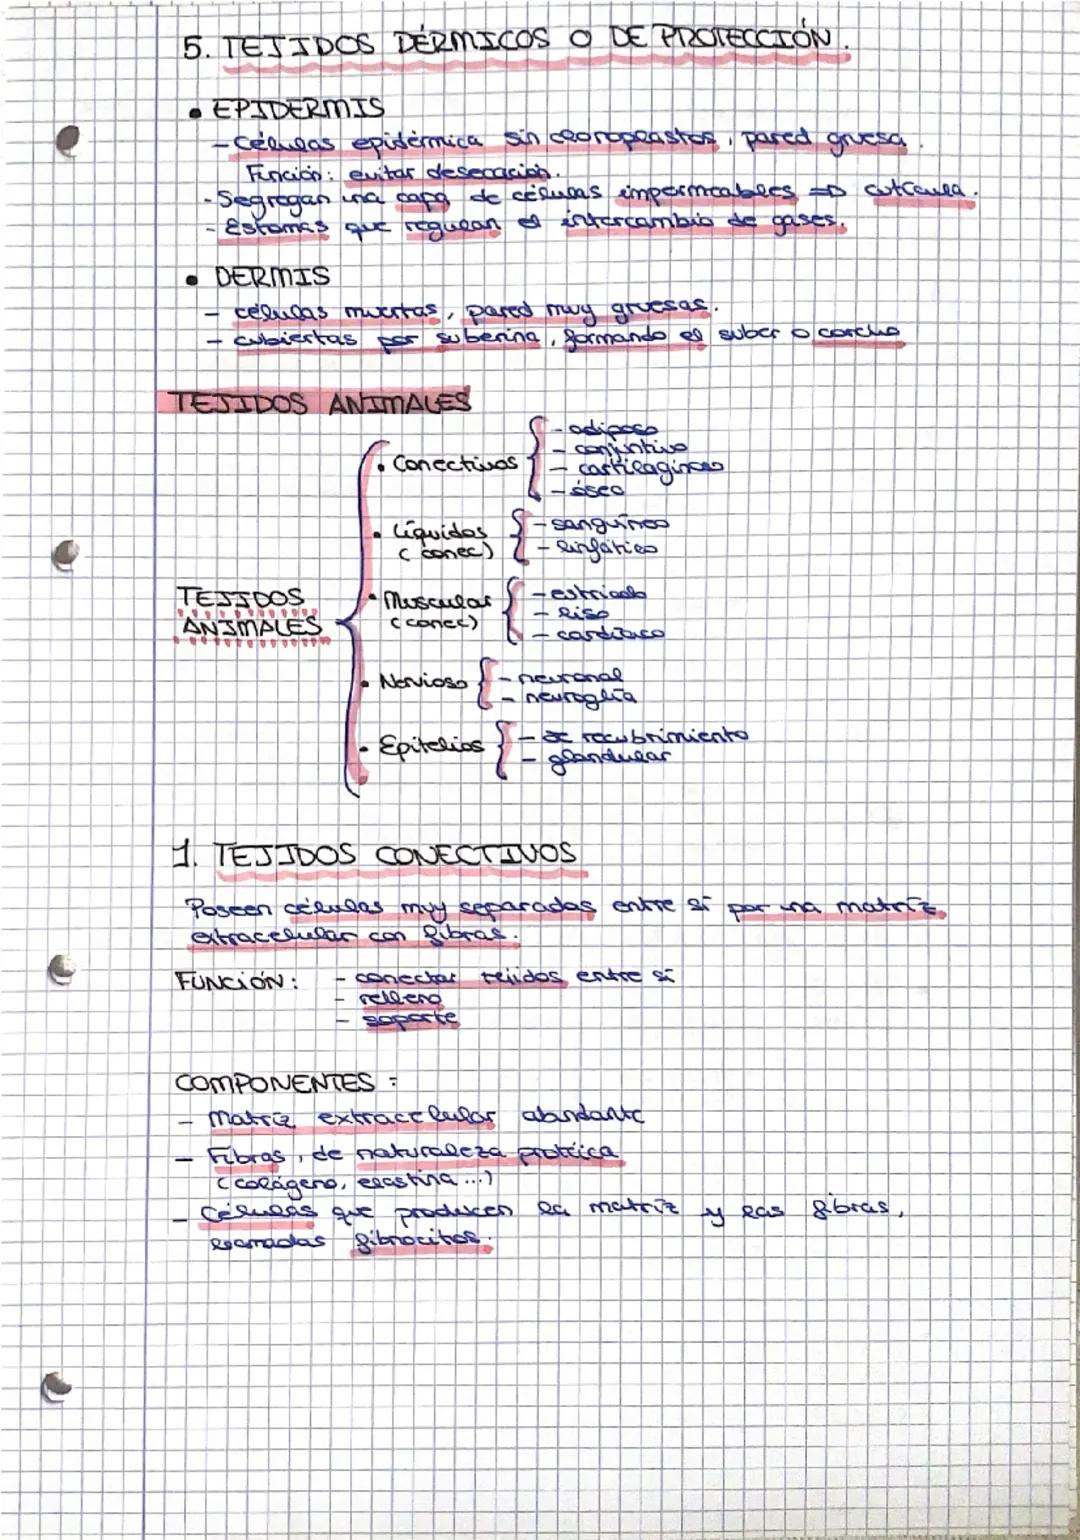 5. TEJIDOS DÉRMICOS O DE PROTECCIÓN.
• EPIDERMIS
- Células epidérmica sin cloroplastos, pared gruesa.
Función: evitar desecación.
- Segregan una capa de células impermeables => cutícula.
- Estomas que regulan el intercambio de gases.
• DERMIS
- células muertas, pared muy gruesas.
- cubiertas por suberina, formando el suber o corcho
TEJIDOS ANIMALES
TEJIDOS
ANIMALES
• Conectivos
- adiposo
- conjuntivo
- cartilaginoso
- óseo
• Líquidos
(conec)
- sanguíneo
- linfático
• Muscular
(conec)
- estriado
- liso
- cardíaco
• Nervioso
- neuronal
- neuroglía
• Epitelios
- de recubrimiento
- glandular
1. TEJIDOS CONECTIVOS
Poseen células muy separadas entre sí por una matriz
extracelular con fibras.
FUNCIÓN: - conectar tejidos entre sí
- relleno
- soporte
COMPONENTES:
- Matriz extracelular abundante
- Fibras, de naturaleza protéica
(colágeno, elastina...)
- Células que producen la matriz y las fibras,
llamadas fibrocitos.